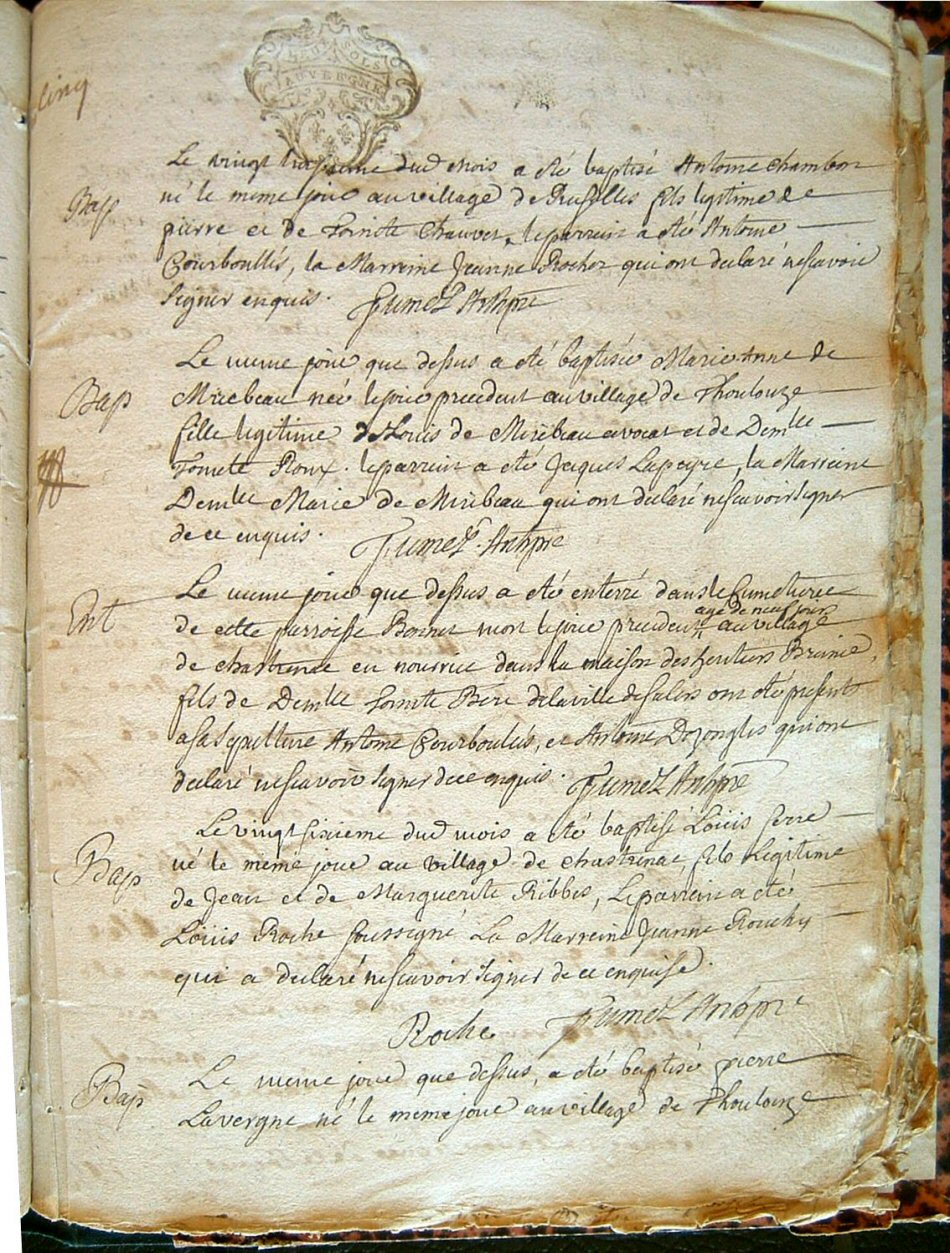 cinq
DEUX SOLS
AUVERGNE
Le vingt dud mois a eté baptisé Antoine Chambon
Bap né le meme jour au village de Rufilles fils legitime de
pierre et de Toinete Chauvet, le parrein a été Antoine
Courboulés, la Marreine Jeanne Rochez qui ont declaré nescavoir
signer enquis. Fumel Anhpre
Le meme jour que dessus a été baptisée Marie Anne de
Bap Mirebeau née le jour precedent au village de Thoulouze
fille legitime de Louis de Mirebeau avocat et de Demlle
Toinete Roux. le parrein a été Jacques Lapeyre, la Marreine
Demlle Marie de Mirebeau qui ont declaré nescavoir signer
de ce enquis. Fumel. Anhpre
Le meme jour que dessus a été enterré dans le cimetiere
Ent de cette parroisse Bonnet mort le jour precedent agé de neuf jour au village
de chastrenac en nourrice dans la maison des heritiers Brunie,
fils de Demlle Toinete Bere de la ville de Salers ont été present
a sa sepulture Antoine Courboulés, et Antoine Dezongles qui ont
declaré nescavoir signer de ce enquis. Fumel Anhpre
Le vingt sixieme dud mois a été baptisé Loüis serre
Bap né le même jour au village de chastrenac fils Legitime
de Jean et de Marguerite Ribbes, Le parrein a été
Loüis Roche soussigné La Marreine Jeanne Rouchy
qui a declaré nescavoir signer de ce enquise.
Roche Fumel Anhpre
Bap Le meme jour que dessus, a été baptisé pierre
Lavergne né le meme jour au village de Thoulouze